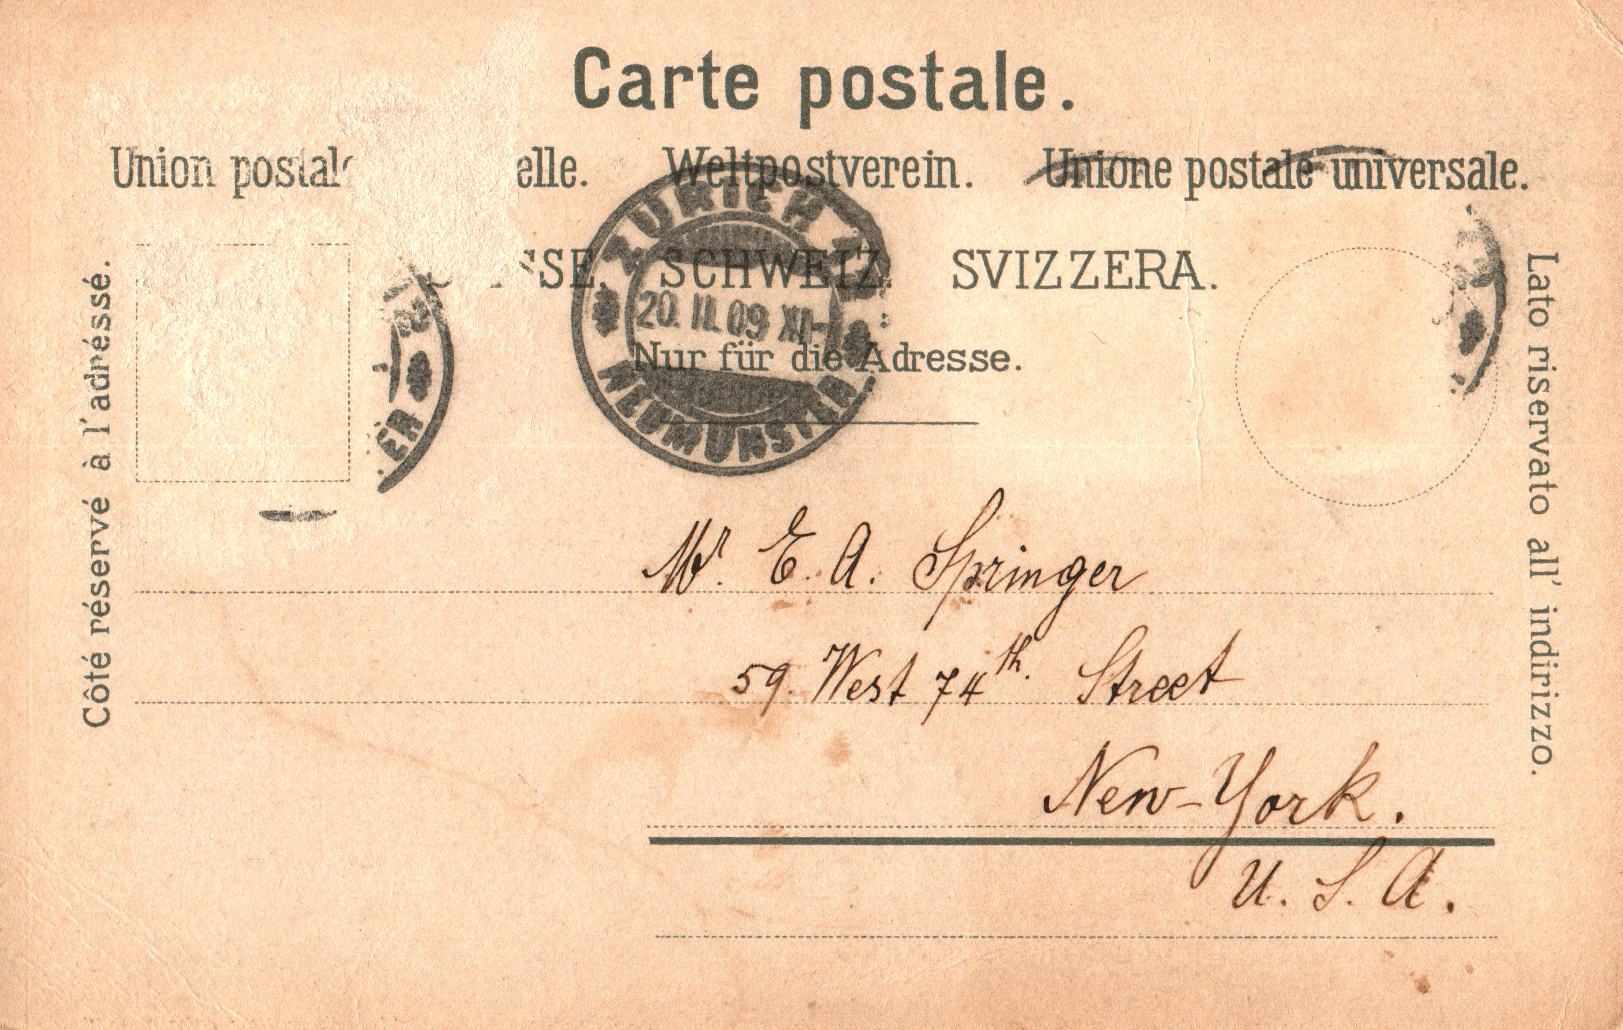 Carte postale.
Union postale elle. Weltpostverein. Unione postale universale.
SSE. SCHWEIZ. SVIZZERA.
Nur für die Adresse.
ZÜRICH
20. II. 09 XI-
NEUMÜNSTER
ER
Côté réservé à l'adréssé.
Lato riservato all' indirizzo.
Mr. E. A. Springer
59. West 74th. Street
New-York.
U. S. A.